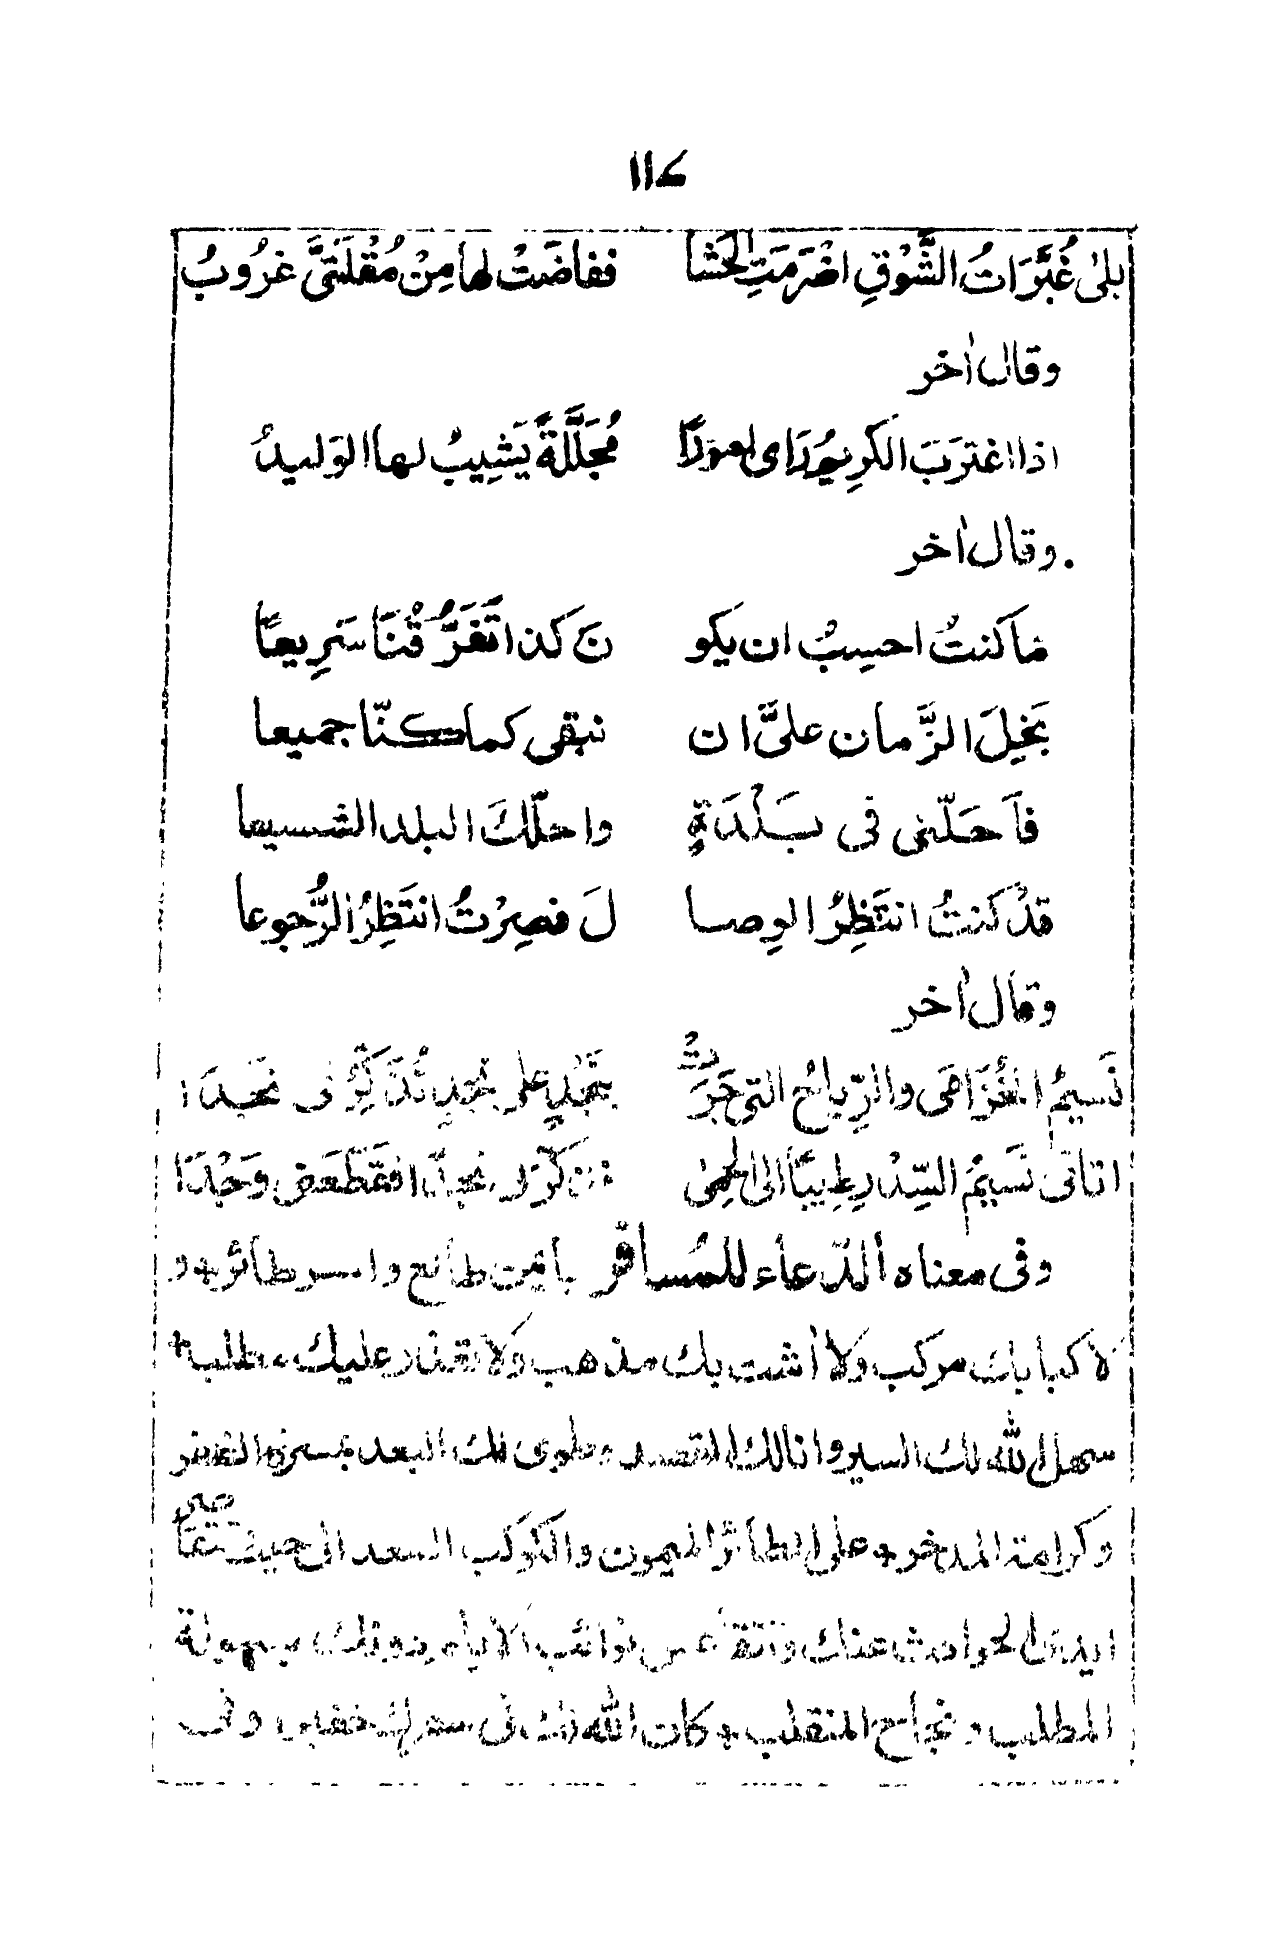 ١١٤
بلىٰ غُبَّرَاتُ الشَّوْقِ اضْرَمَتِ الْحَشَا ففاضَتْ لها مِنْ مُقْلَتَيَّ غرُوبُ
وقال اٰخر
اذا اغترَبَ الكَرِيمُ رَاى امورًا مُجَلَّلَةً يَشِيبُ لها الوَليدُ
وقال اٰخر
مَا كنتُ احسِبُ ان يكو نَ كذا تَفَرُّقُنَا سَرِيعًا
بَخِلَ الزَّمان علىَّ ان نبقى كما كنّا جميعا
فأَحَلّنى فى بَلْدَةٍ واحلّكَ البلد الشسيعا
قدْ كنتُ انتَظِرُ الوِصا لَ فصِرْتُ انتَظِرُ الرُّجوعا
وقال اٰخر
نَسيمُ الخُزَامَى والرِّياحُ التى جَرَتْ بِنَجْدٍ على نجدٍ تُذَكِّرُنى نَجْدَا
اتانى نَسيمُ السِّدْرِ طِيبًا الى الحِمىٰ نجدًا فقطّعنى وَجْدَا
وفى معناه الدّعاء للمُسافر بايمن طالع وايسر طائر و
لا كبا بك مركب ولا اشت بك مذهب ولا تعذر عليك مطلب
سهل الله لك السير وانالك القصد وطوى لك البعد بمسرة الظفر
وكرامة المدخر على الطائر الميمون والكوكب السعد الى حيث تتقاصر
ايدى الحوادث عنك نوائب الايام بسهولة
المطلب و نجاح المنقلب و كان الله لك فى سفرك خفيرا وفى